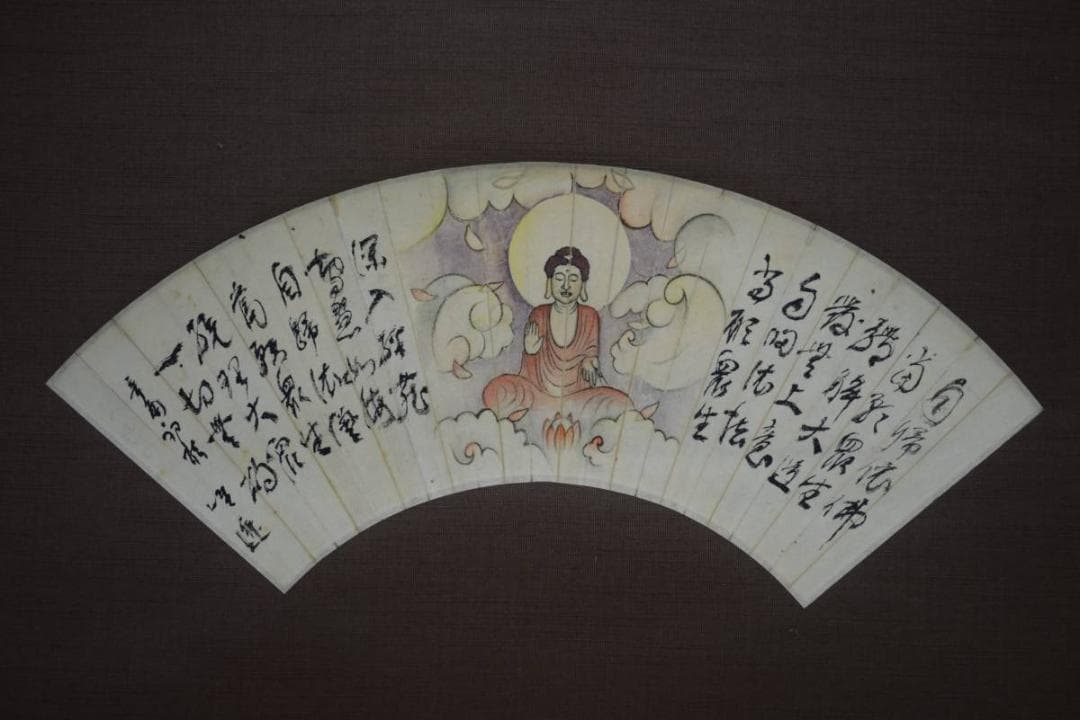 自歸依佛
當願眾生
體解大道
發無上意
自歸依法
當願眾生
深入經藏
智慧如海
自歸依僧
當願眾生
統理大眾
一切無礙